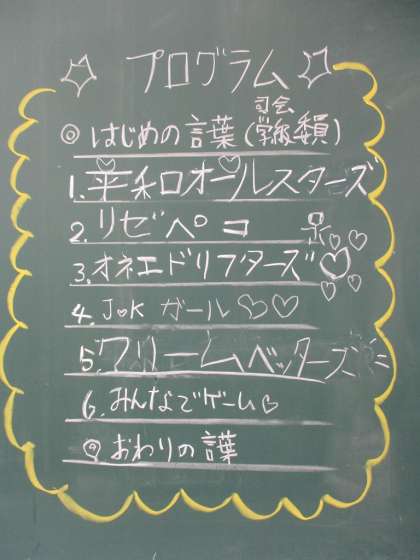 ☆ プログラム ☆
◎ はじめの言葉 (司会 学級委員)
1. 平和口オールスターズ
2. リゼペコ
3. オネエドリフターズ♡
4. J♥K ガール♡♡
5. クリームベッターズ
6. みんなでゲーム♡
◎ おわりの言葉